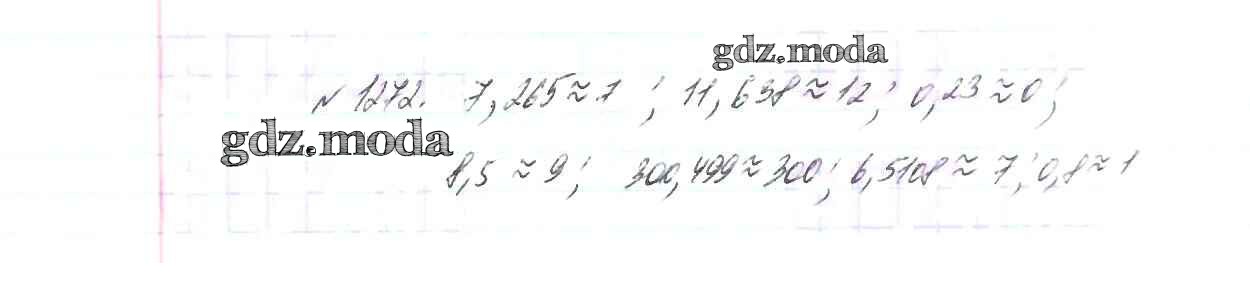 gdz.moda
№ 1272. 7,265 ≈ 7 ; 11,638 ≈ 12; 0,23 ≈ 0;
gdz.moda
8,5 ≈ 9; 300,499 ≈ 300; 6,5108 ≈ 7; 0,8 ≈ 1